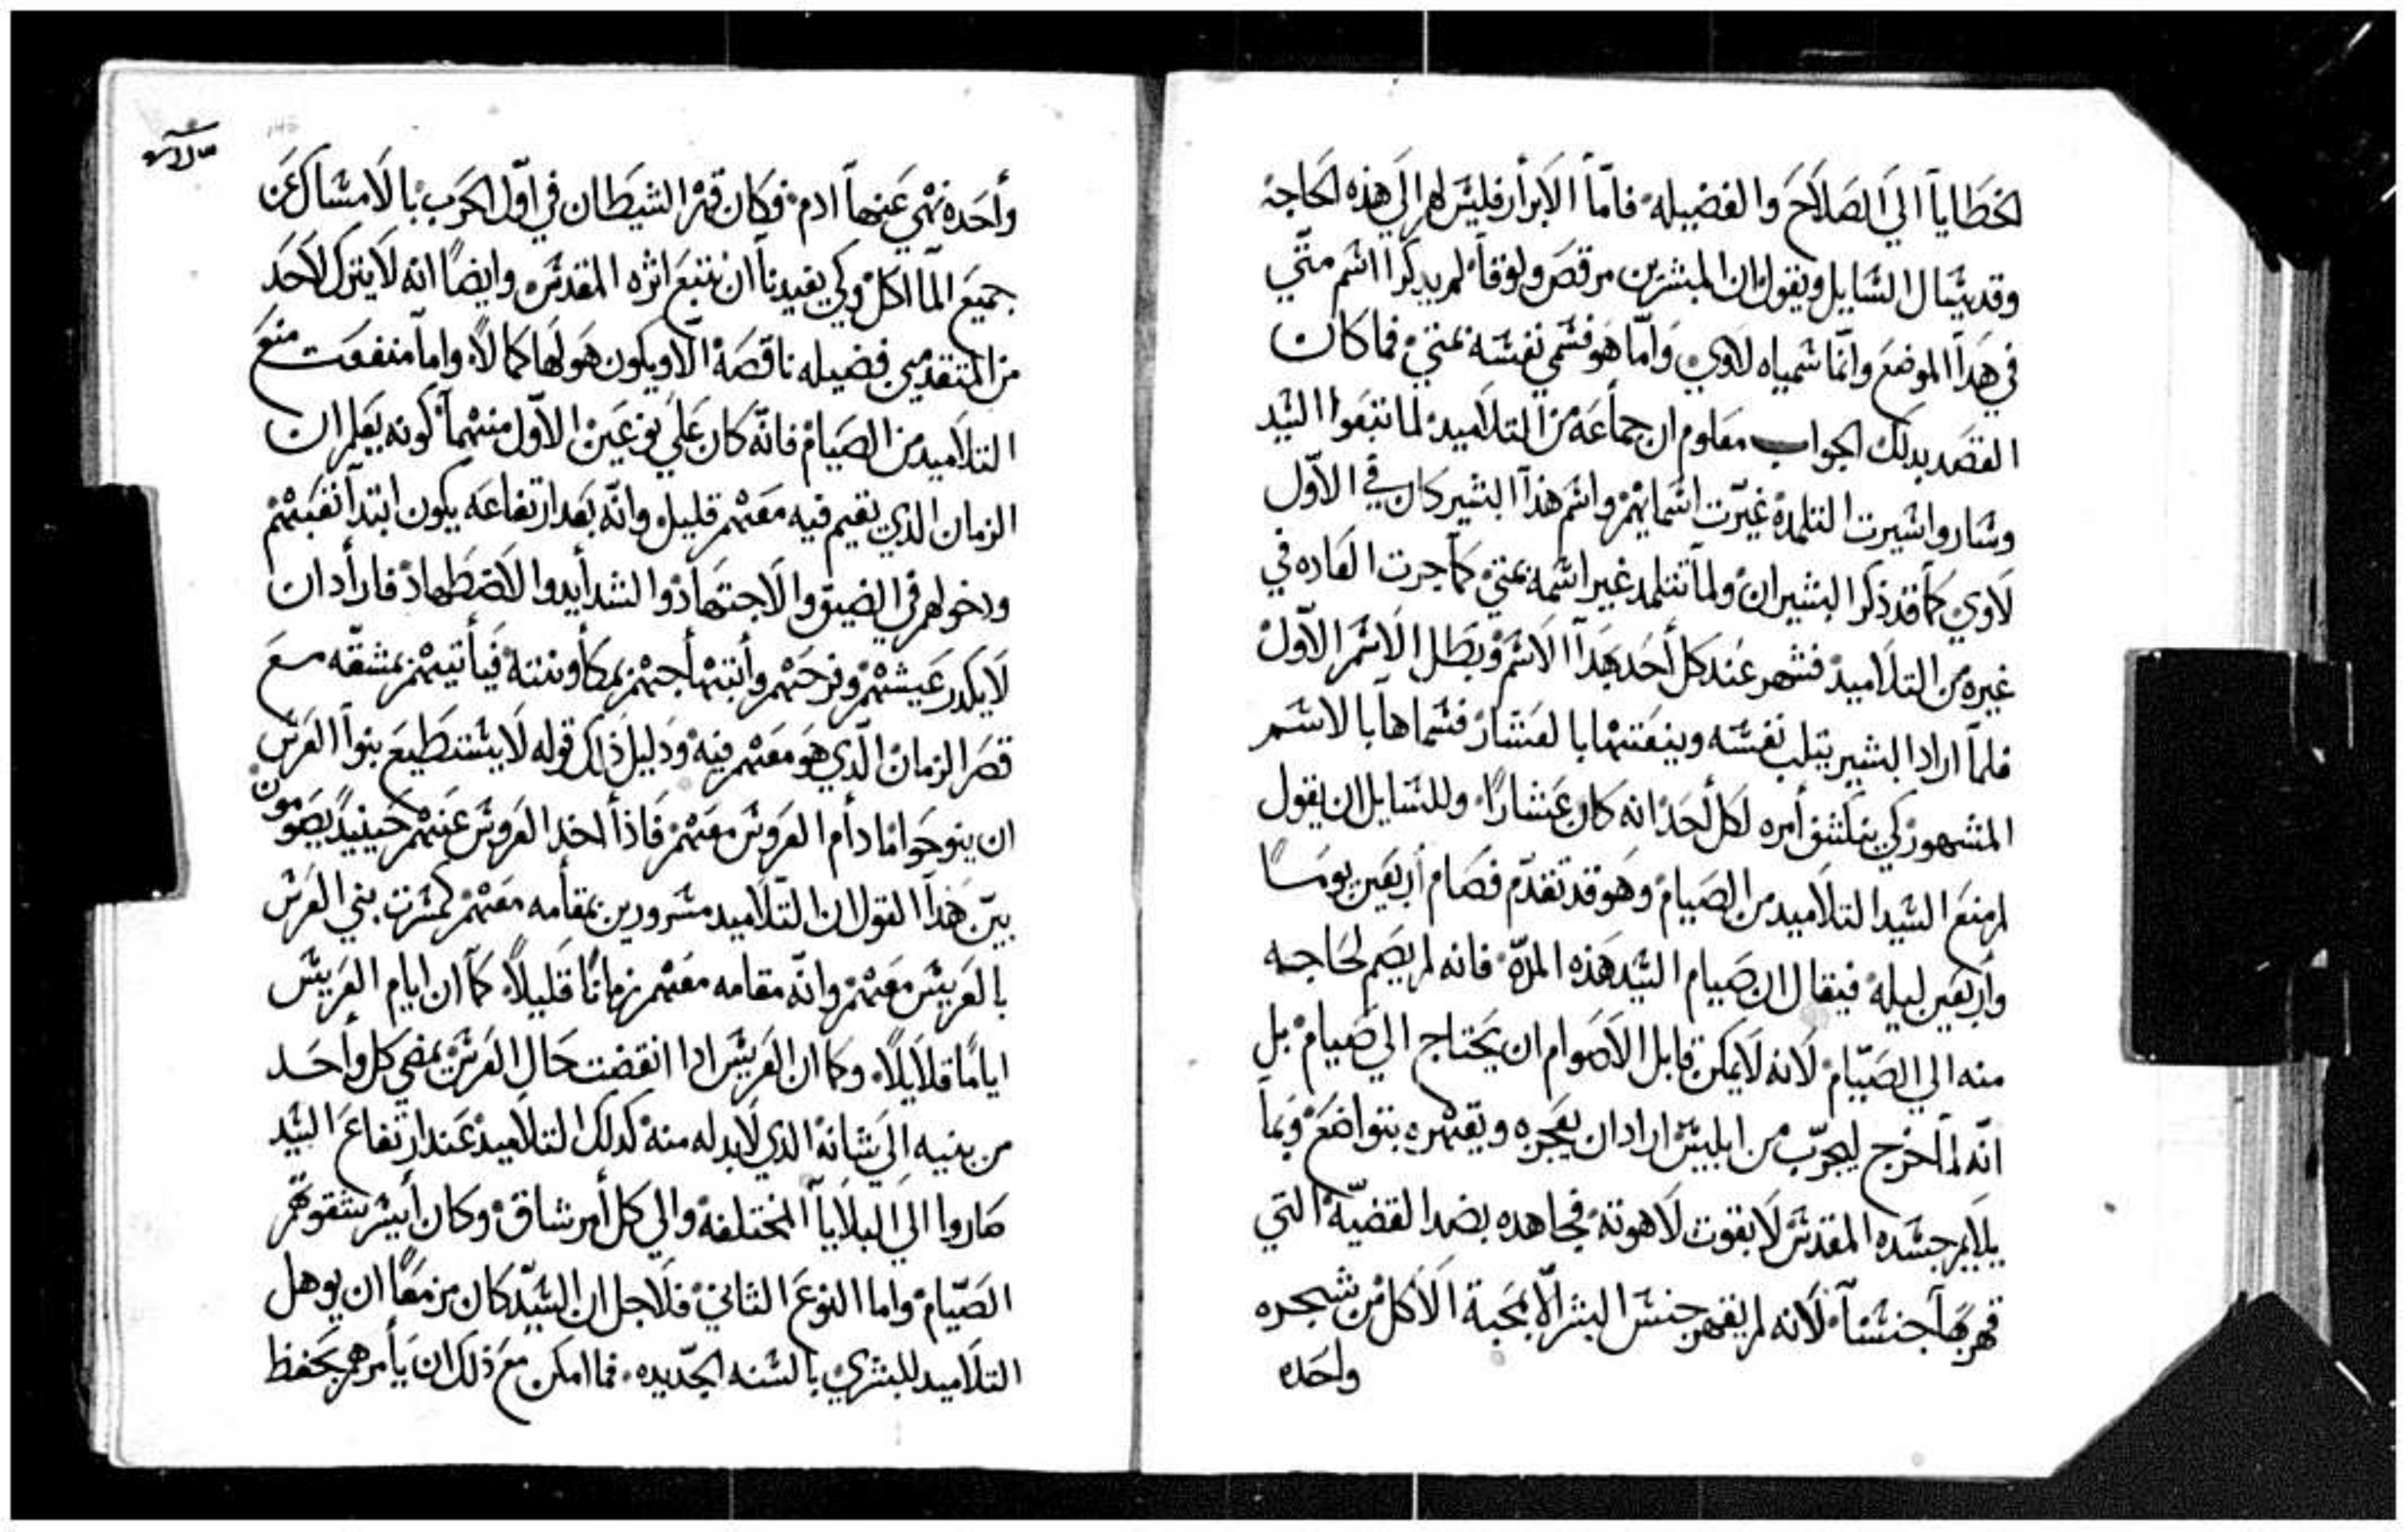 لخطايا الي الصلاح والفضيله فاما الابرار فليس لهم الي هذه الحاجه
وقد يسال السايل ويقول ان المبشرين مرقص ولوقا لم يدكرا اسم متي
في هدا الموضع وانما سمياه لاوي واما هو فسمي نفسه بمتي فما كان
القصد بدلك الجواب معلوم ان جماعة من التلاميد لما تبعوا السيد
وساروا سيرت التلمدة غيرت اسمايهم واسم هذا البشير كان في الاول
لاوي كما قد ذكر البشيران ولما تتلمد غير اسمه بمتي كما جرت العاده في
غيره من التلاميد فشهر عند كل احد بهدا الاسم وبطل الاسم الاول
فلما اراد البشير يتلب نفسه وينعتها بالعشار فسماها بالاسم
المشهور كي ينكشف امره لكل احد انه كان عشارا وللسايل ان يقول
لم منع السيد التلاميد من الصيام وهو قد تقدم فصام اربعين يوما
واربعين ليله فيقال ان صيام السيد هذه المدة فانه لم يصم لحاجه
منه الي الصيام لانه لا يمكن قابل الاصوام ان يحتاج الي صيام بل
انه لما خرج ليجرب من ابليس اراد ان يعجزه ويقهره بتواضع وبما
يلايم جسده المقدس لا بقوت لاهوته فجاهده بضد القضية التي
قهر بها جنسنا لانه لم يقهر جنس البشر الا بمحبة الاكل من شجره
واحده
واحده نهي عنها ادم فكان قهر الشيطان في اول الحرب بالامساك عن
جميع الماكل وكي يفيدنا ان نتبع اثره المقدس وايضا انه لا يترك لاحد
من المتقدمين فضيله ناقصة الا ويكون هو لها كمالا واما منفعت منع
التلاميد من الصيام فانه كان علي نوعين الاول منهما كونه يعلم ان
الزمان الدي يقيم فيه معهم قليل وانه بعد ارتفاعه يكون ابتدا تعبهم
ودخولهم في الضيق والاجتهاد والشدايد والاضطهاد فاراد ان
لا يكدر عيشهم وفرحهم وابتهاجهم بمكاونته فياتيهم بمشقه مع
قصر الزمان الدي هو معهم فيه ودليل ذلك قوله لا يستطيع بنوا العرس
ان ينوحوا مادام العروس معهم فاذا اخد العروس عنهم حينيد يصومون
بين هدا القول ان التلاميد مسرورين بمقامه معهم كمسرت بني العرس
بالعريس معهم وانه مقامه معهم زمانا قليلا كما ان ايام العريس
اياما قلايلا وكما ان العريس ادا انقضت حال العرس يمضي كل واحد
من بنيه الي شانه الدي لابد له منه كدلك التلاميد عند ارتفاع السيد
صاروا الي البلايا المختلفة والي كل امر شاق وكان ايسر شقوتهم
الصيام واما النوع الثاني فلاجل ان السيد كان مزمعا ان يوهل
التلاميد للبشري بالسنه الجديده فما امكن مع ذلك ان يامرهم بحفظ